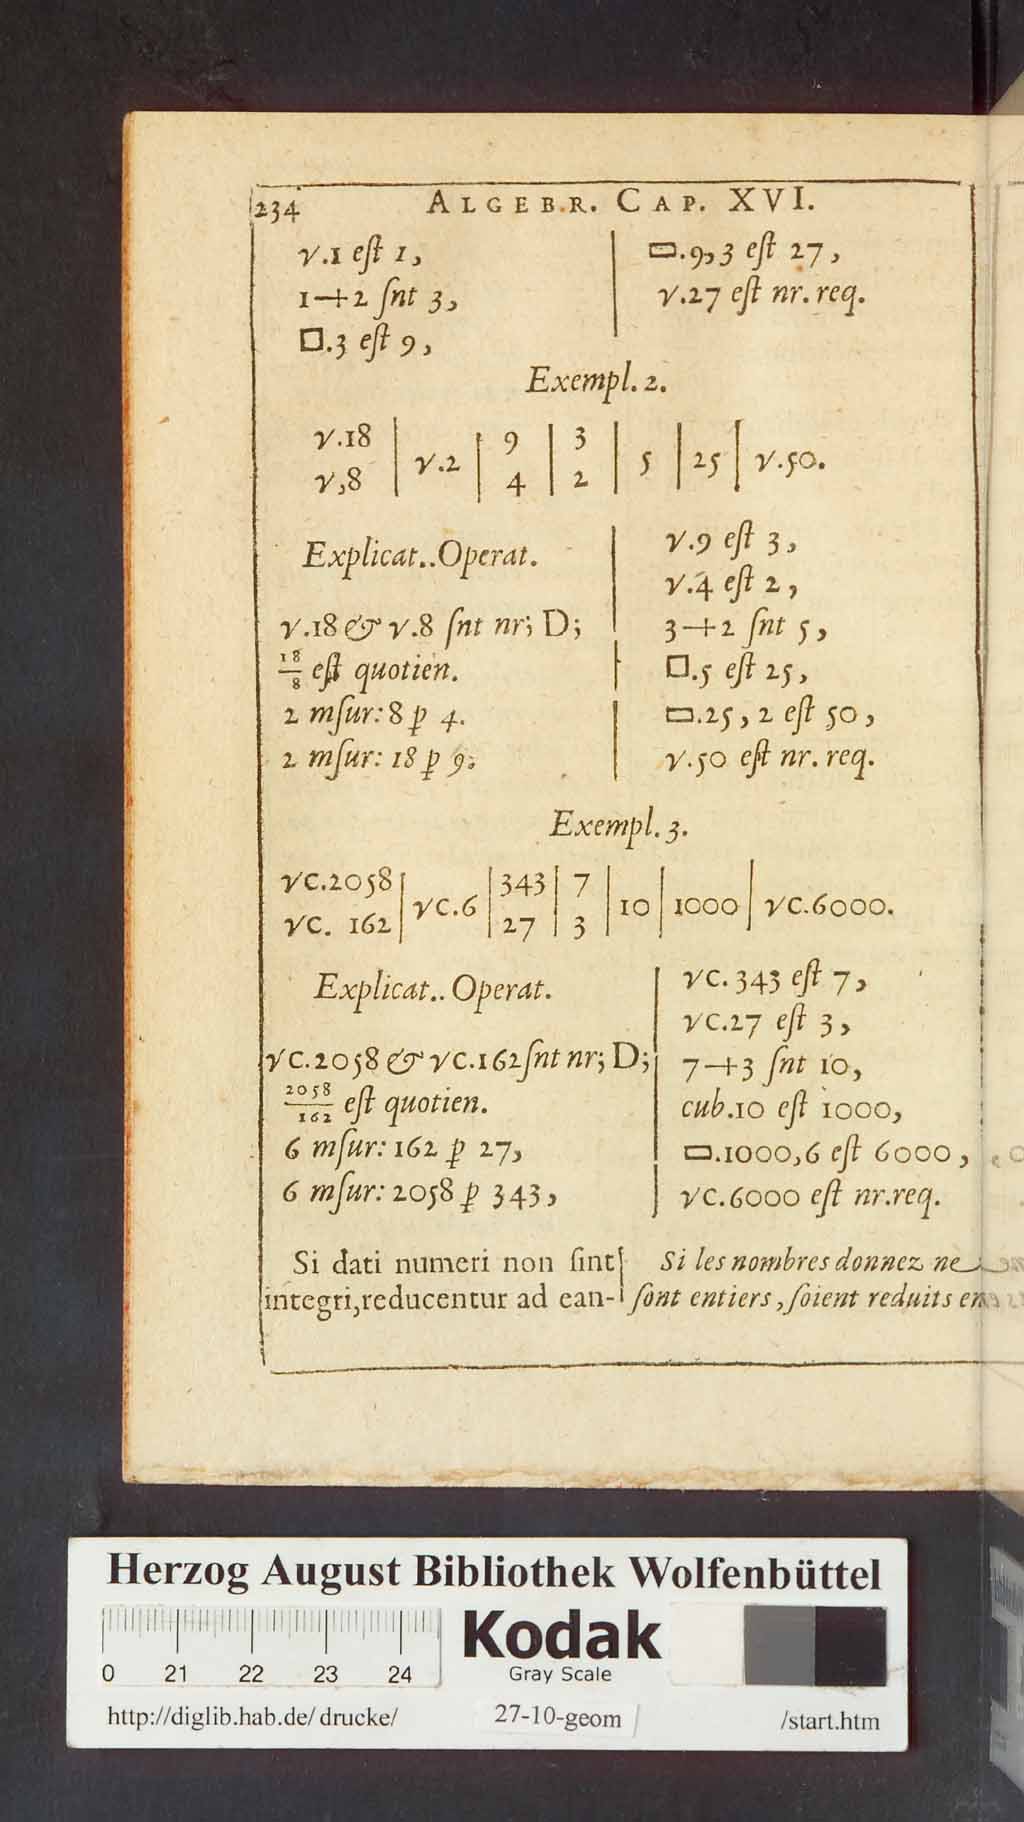 234 ALGEBR. CAP. XVI.
√.1 eſt 1,
1+2 ſnt 3,
□.3 eſt 9,
▭.9,3 eſt 27,
√.27 eſt nr. req.
Exempl. 2.
√.18 | √.2 | 9 | 3 | 5 | 25 | √.50.
√,8 4 2
Explicat..Operat.
√.18 & √.8 ſnt nr; D;
18/8 eſt quotien.
2 mſur: 8 ꝑ 4.
2 mſur: 18 ꝑ 9.
√.9 eſt 3,
√.4 eſt 2,
3+2 ſnt 5,
□.5 eſt 25,
▭.25, 2 eſt 50,
√.50 eſt nr. req.
Exempl. 3.
√C.2058 | √C.6 | 343 | 7 | 10 | 1000 | √C.6000.
√C. 162 27 3
Explicat.. Operat.
√C.2058 & √C.162 ſnt nr; D;
2058/162 eſt quotien.
6 mſur: 162 ꝑ 27,
6 mſur: 2058 ꝑ 343,
√C.343 eſt 7,
√C.27 eſt 3,
7+3 ſnt 10,
cub.10 eſt 1000,
▭.1000,6 eſt 6000,
√C.6000 eſt nr.req.
Si dati numeri non ſint
integri,reducentur ad ean-
Si les nombres donnez ne
ſont entiers, ſoient reduits en
Herzog August Bibliothek Wolfenbüttel
Kodak
Gray Scale
0 21 22 23 24
http://diglib.hab.de/ drucke/ 27-10-geom /start.htm